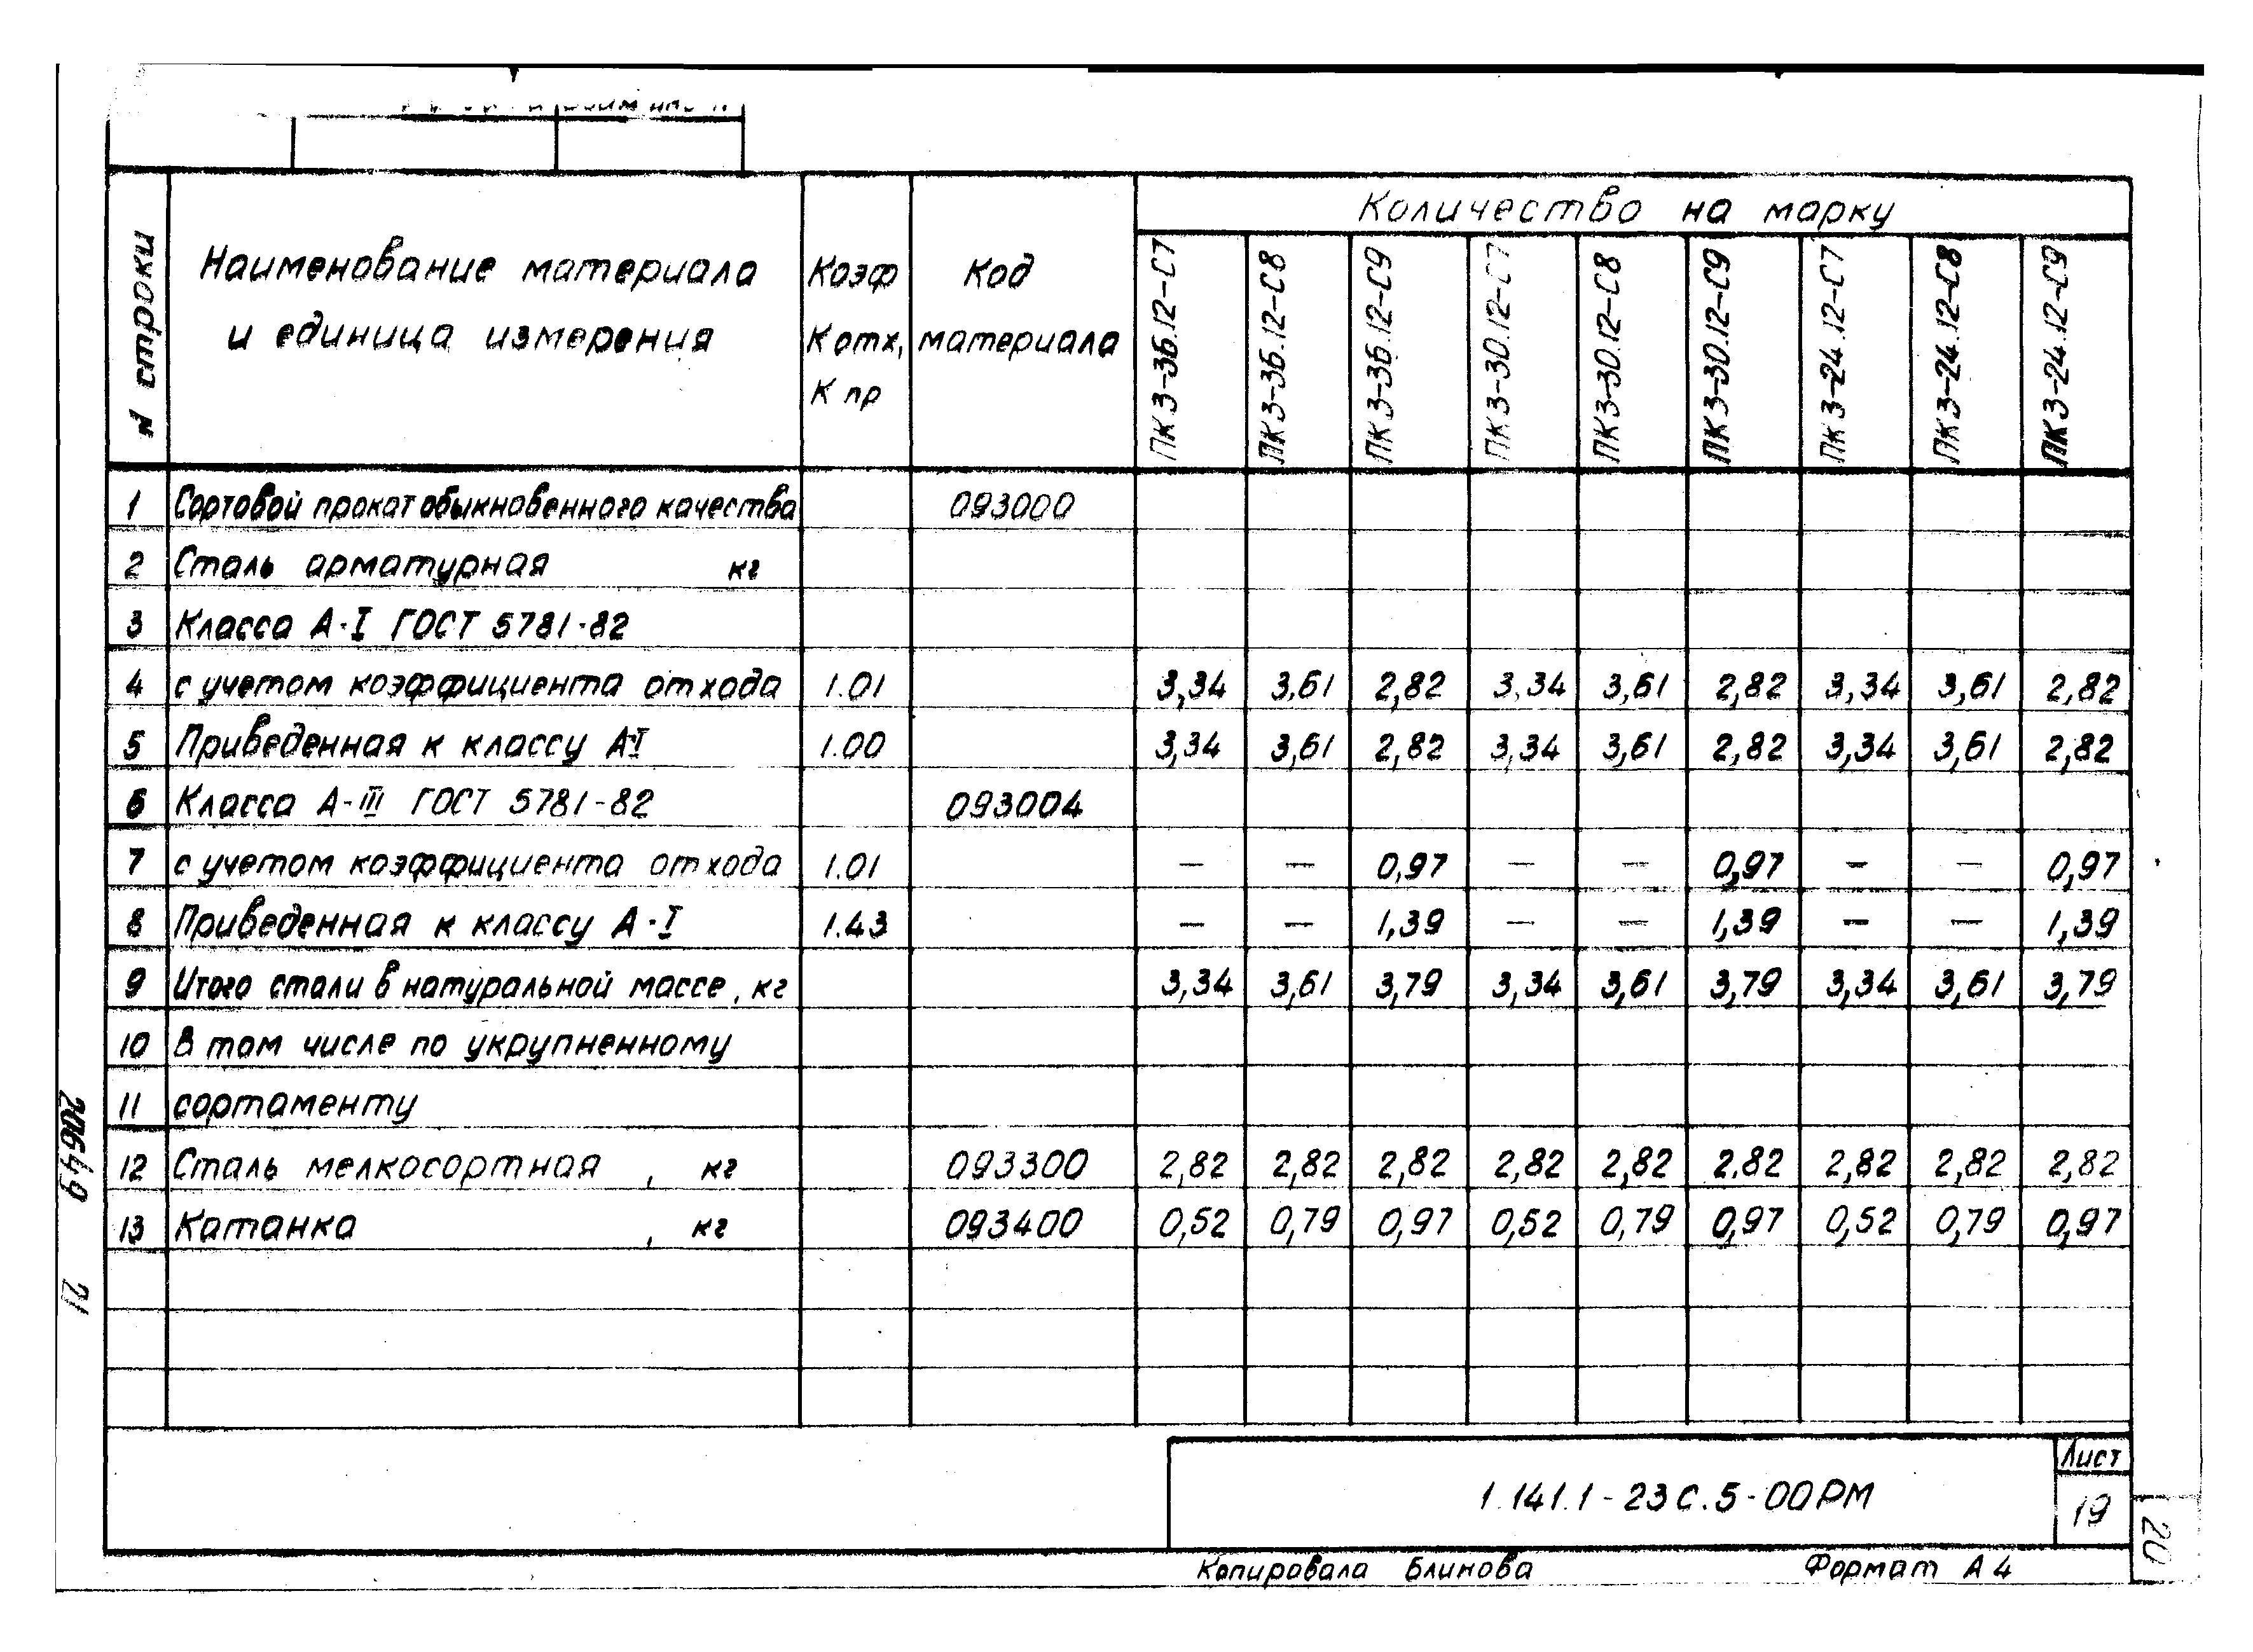 Количество на марку
N строки
Наименование материала и единица измерения
Коэф К отх, К пр
Код материала
ПК 3-36.12-С7
ПК 3-36.12-С8
ПК 3-36.12-С9
ПК 3-30.12-С7
ПК 3-30.12-С8
ПК 3-30.12-С9
ПК 3-24.12-С7
ПК 3-24.12-С8
ПК 3-24.12-С9
1 Сортовой прокат обыкновенного качества 093000
2 Сталь арматурная кг
3 Класса А-I ГОСТ 5781-82
4 с учетом коэффициента отхода 1.01 3,34 3,61 2,82 3,34 3,61 2,82 3,34 3,61 2,82
5 Приведенная к классу А-I 1.00 3,34 3,61 2,82 3,34 3,61 2,82 3,34 3,61 2,82
6 Класса А-III ГОСТ 5781-82 093004
7 с учетом коэффициента отхода 1.01 — — 0,97 — — 0,97 — — 0,97
8 Приведенная к классу А-I 1.43 — — 1,39 — — 1,39 — — 1,39
9 Итого стали в натуральной массе, кг 3,34 3,61 3,79 3,34 3,61 3,79 3,34 3,61 3,79
10 В том числе по укрупненному
11 сортаменту
12 Сталь мелкосортная , кг 093300 2,82 2,82 2,82 2,82 2,82 2.82 2,82 2,82 2,82
13 Катанка , кг 093400 0,52 0,79 0,97 0,52 0,79 0,97 0,52 0,79 0,97
20649 21
1.141.1-23 С.5-00РМ
Лист
19
20
Копировала Блинова Формат А4